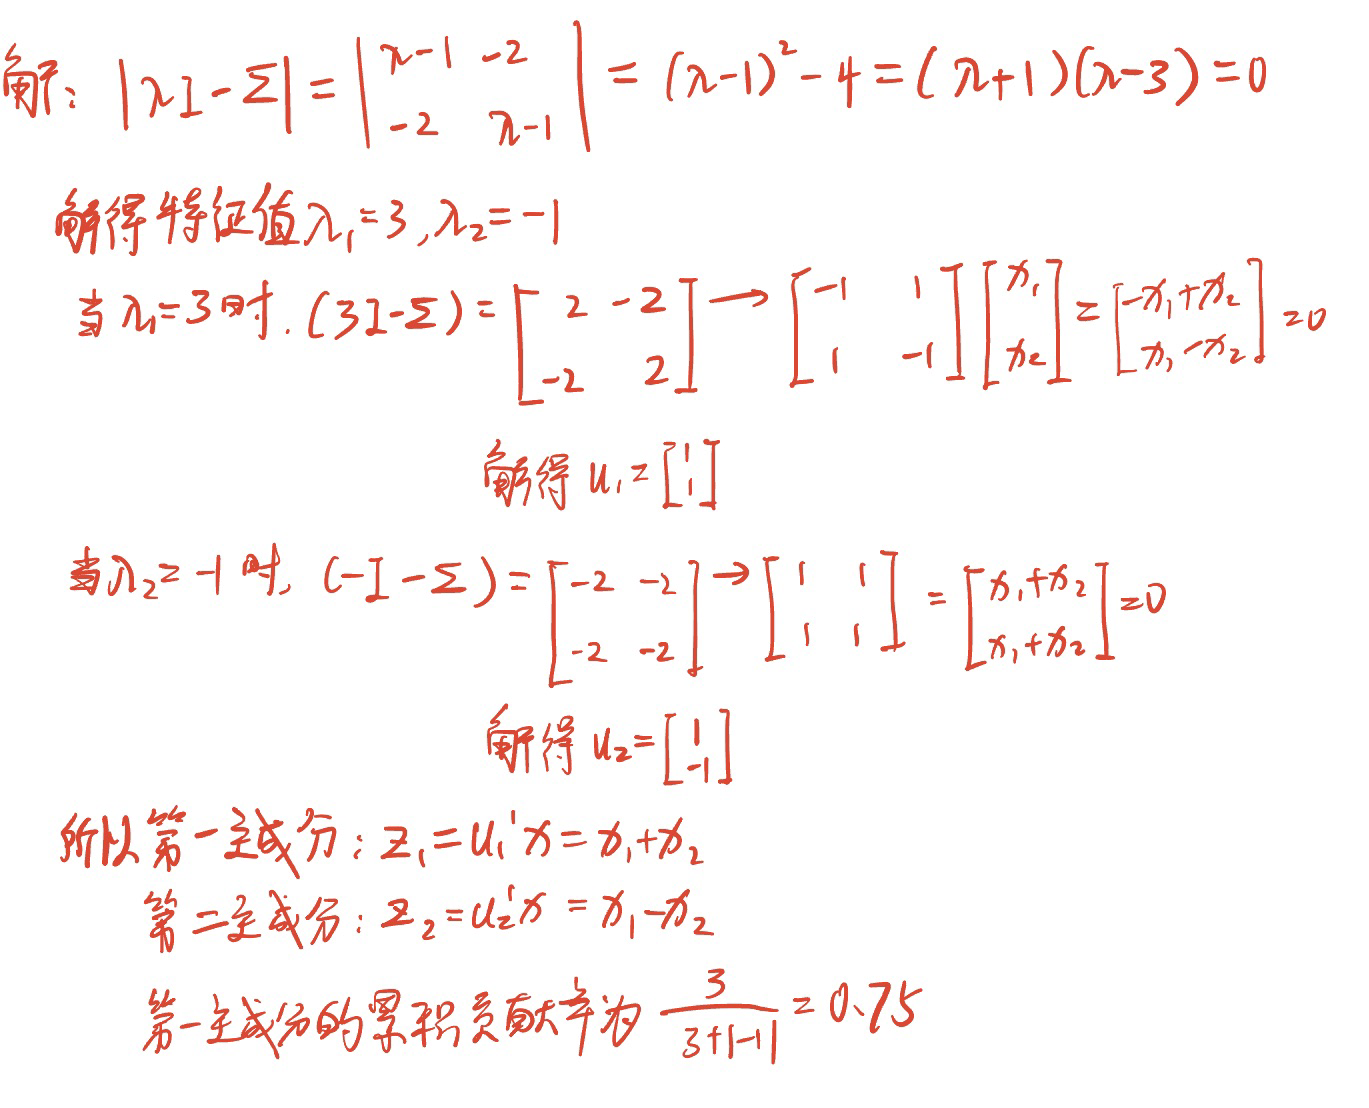 解: |λI-Σ| = |λ-1 -2; -2 λ-1| = (λ-1)² - 4 = (λ+1)(λ-3) = 0
解得特征值λ₁=3, λ₂=-1
当λ₁=3时. (3I-Σ) = [2 -2; -2 2] → [-1 1; 1 -1] [x₁; x₂] = [-x₁+x₂; x₁-x₂] = 0
解得 u₁ = [1; 1]
当λ₂=-1时, (-I-Σ) = [-2 -2; -2 -2] → [1 1; 1 1] = [x₁+x₂; x₁+x₂] = 0
解得 u₂ = [1; -1]
所以第一主成分: z₁ = u₁'x = x₁+x₂
第二主成分: z₂ = u₂'x = x₁-x₂
第一主成分的累积贡献率为 3/(3+|-1|) = 0.75